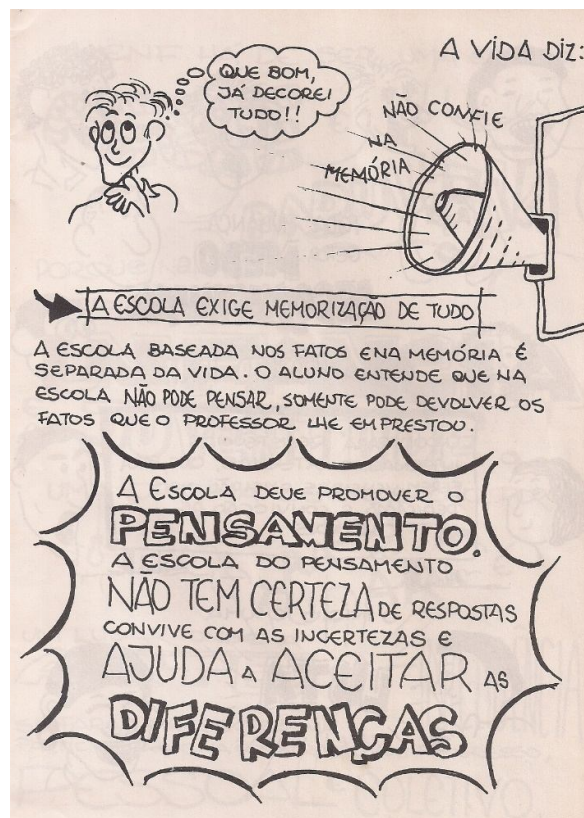 A VIDA DIZ:
QUE BOM,
JÁ DECOREI
TUDO!!
NÃO CONFIE
NA
MEMÓRIA
A ESCOLA EXIGE MEMORIZAÇÃO DE TUDO
A ESCOLA BASEADA NOS FATOS E NA MEMÓRIA É
SEPARADA DA VIDA. O ALUNO ENTENDE QUE NA
ESCOLA NÃO PODE PENSAR, SOMENTE PODE DEVOLVER OS
FATOS QUE O PROFESSOR LHE EMPRESTOU.
A ESCOLA DEVE PROMOVER O
PENSAMENTO.
A ESCOLA DO PENSAMENTO
NÃO TEM CERTEZA DE RESPOSTAS
CONVIVE COM AS INCERTEZAS E
AJUDA A ACEITAR AS
DIFERENÇAS